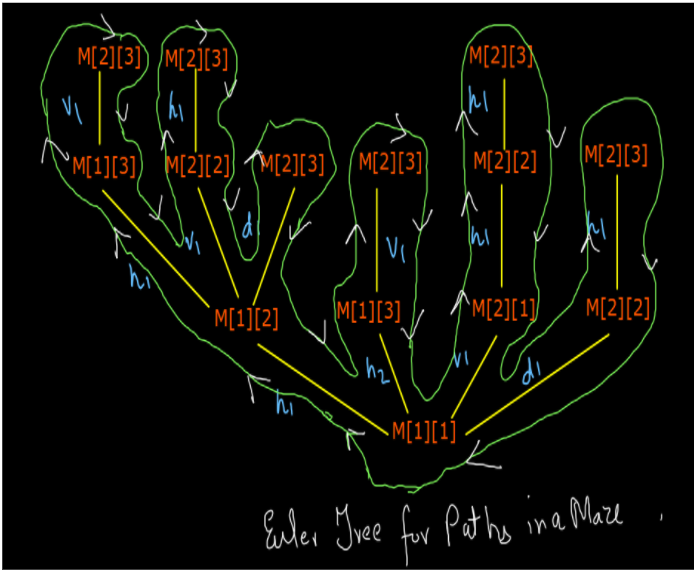 M[2][3] M[2][3] M[2][3]
v1 h1 h1
M[1][3] M[2][2] M[2][3] M[2][3] M[2][2] M[2][3]
h1 v1 d v1 h1 h1
M[1][2] M[1][3] M[2][1] M[2][2]
h1 h2 v1 d1
M[1][1]
Euler Tree for Paths in a Maze .